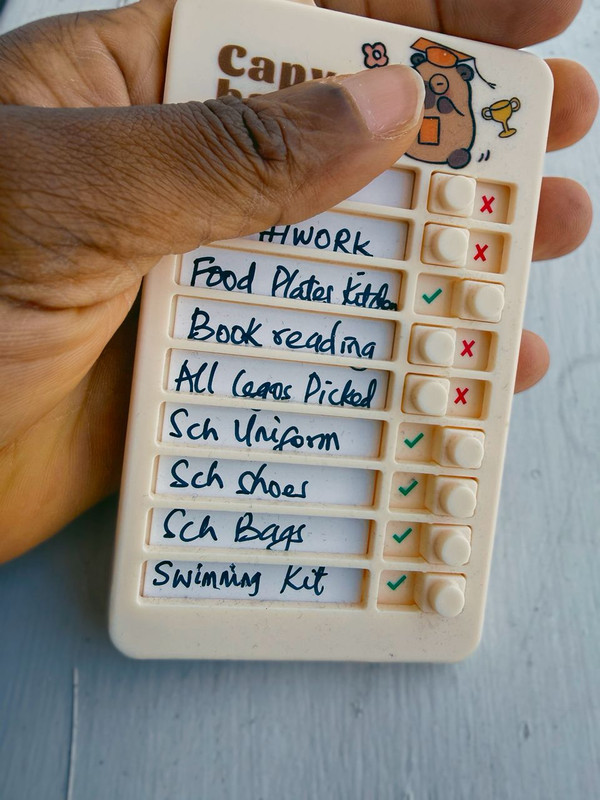 capy
HWORK
Food Plates Kitchen
Book reading
All Legos Picked
Sch Uniform
Sch shoes
Sch Bags
Swimming Kit